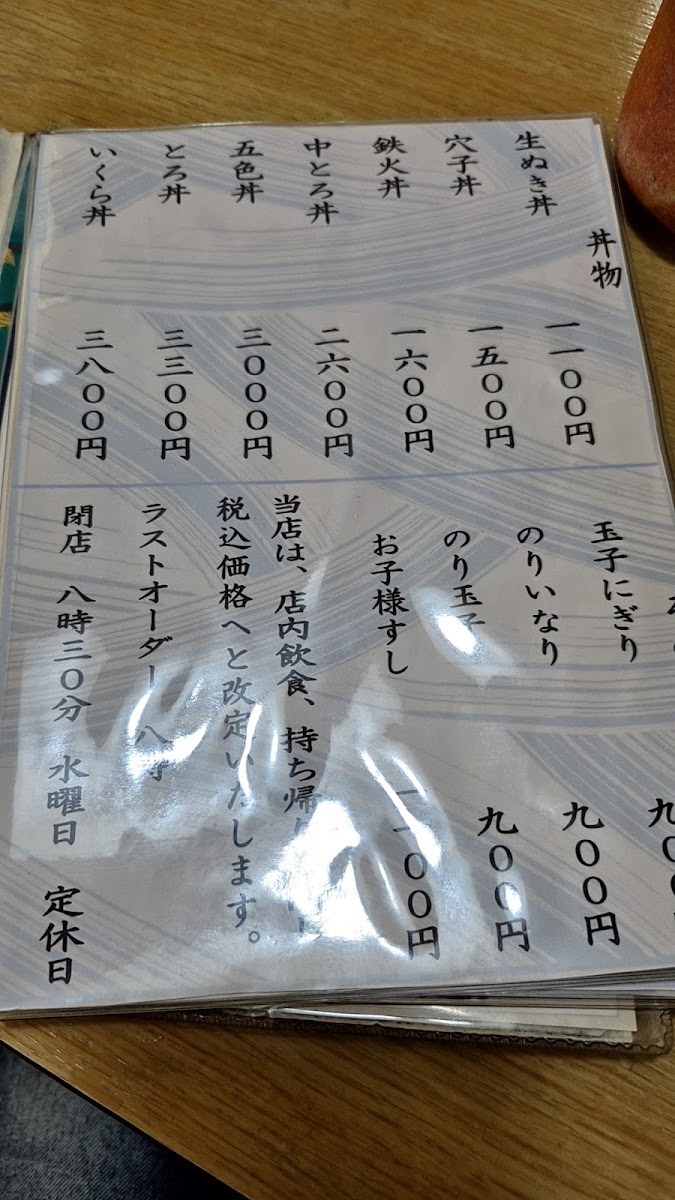 丼物
生ぬき丼 一一〇〇円
穴子丼 一五〇〇円
鉄火丼 一六〇〇円
中とろ丼 二六〇〇円
五色丼 三〇〇〇円
とろ丼 三三〇〇円
いくら丼 三八〇〇円
九〇〇
玉子にぎり 九〇〇円
のりいなり 九〇〇円
のり玉子
お子様すし 一一〇〇円
当店は、店内飲食、持ち帰り
税込価格へと改定いたします。
ラストオーダー 八時
閉店 八時三〇分 水曜日 定休日